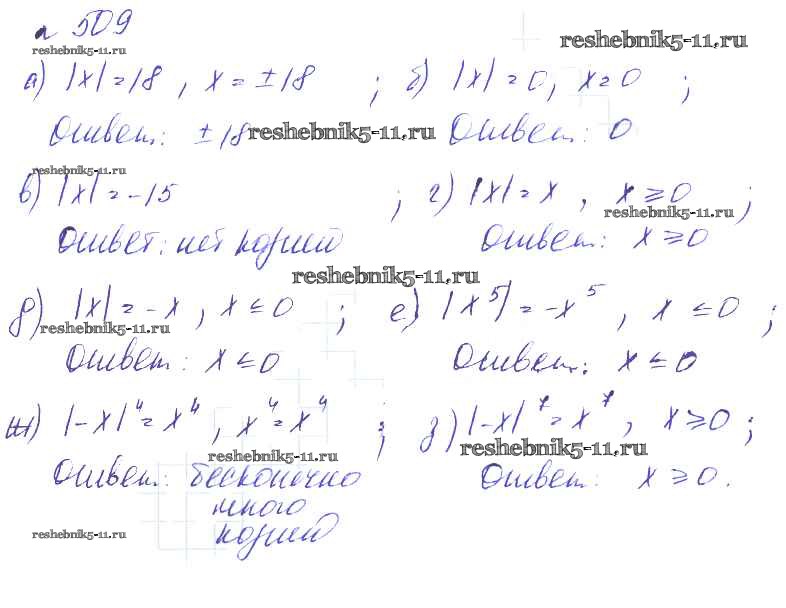 л 509
reshebnik5-11.ru
reshebnik5-11.ru
а) |x| = 18, x = ±18 ; б) |x| = 0, x = 0 ;
Ответ: ±18 reshebnik5-11.ru Ответ: 0
reshebnik5-11.ru
в) |x| = -15 ; г) |x| = x, x ≥ 0 ;
reshebnik5-11.ru
Ответ: нет корней Ответ: x ≥ 0
reshebnik5-11.ru
д) |x| = -x, x ≤ 0 ; е) |x⁵| = -x⁵, x ≤ 0 ;
reshebnik5-11.ru
Ответ: x ≤ 0 Ответ: x ≤ 0
ж) |-x|⁴ = x⁴, x⁴ = x⁴ ; з) |-x|⁷ = x⁷, x ≥ 0 ;
reshebnik5-11.ru reshebnik5-11.ru
Ответ: бесконечно Ответ: x ≥ 0.
много
reshebnik5-11.ru корней